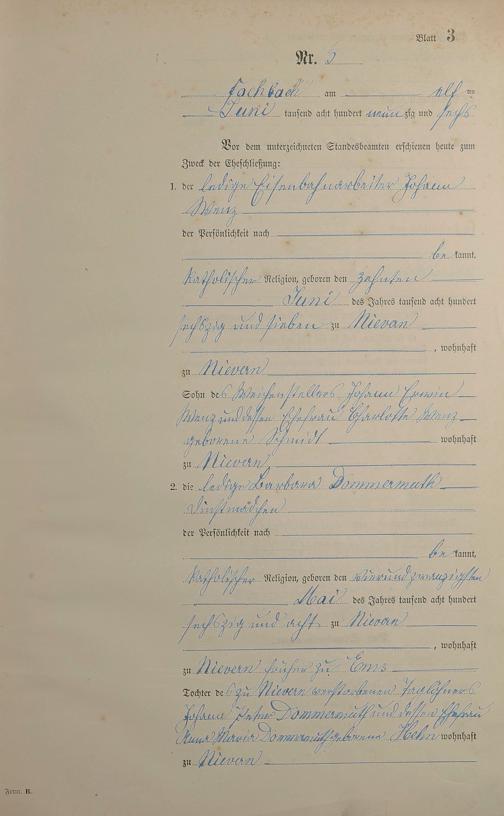 Blatt 3
Nr. 3
Fachbach am elf ten
Juni tausend acht hundert neunzig und sechs
Vor dem unterzeichneten Standesbeamten erschienen heute zum
Zweck der Eheschließung:
1. der ledige Eisenbahnarbeiter Johann
Wenz
der Persönlichkeit nach
be kannt,
katholischer Religion, geboren den zehnten
Juni des Jahres tausend acht hundert
sechszig und sieben zu Nievern
, wohnhaft
zu Nievern
Sohn des Weichenstellers Johann Erwin
Wenz und dessen Ehefrau Charlotte Wenz
geborene Schmidt wohnhaft
zu Nievern
2. die ledige Barbara Dommermuth
Dienstmädchen
der Persönlichkeit nach
be kannt,
katholischer Religion, geboren den vierundzwanzigsten
Mai des Jahres tausend acht hundert
sechszig und acht zu Nievern
, wohnhaft
zu Nievern früher zu Ems
Tochter des zu Nievern verstorbenen Taglöhners
Johann Peter Dommermuth und dessen Ehefrau
Anna Maria Dommermuth geborene Hehn wohnhaft
zu Nievern
Form. B.